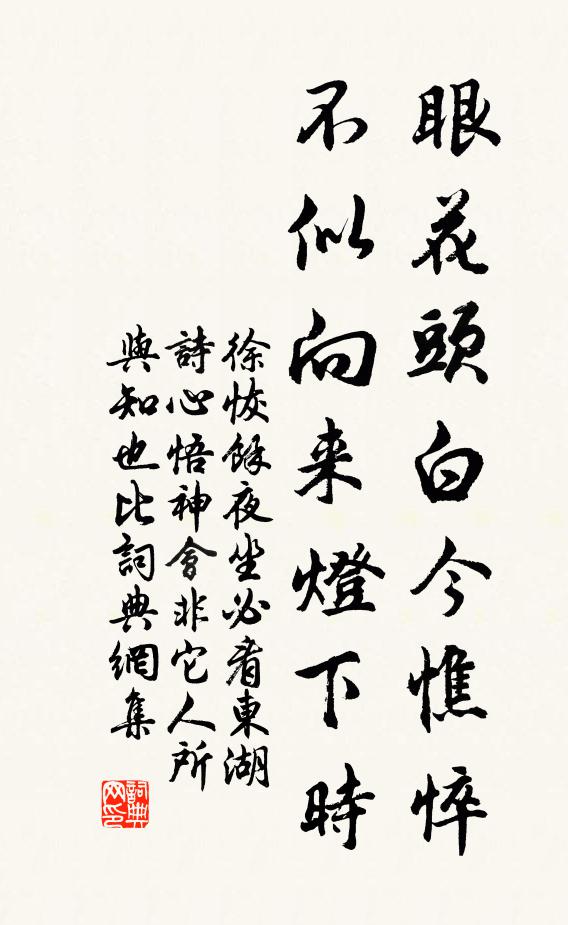 眼花頭白今憔悴
不似向来燈下時
徐恢餘夜坐必看東湖
詩心悟神會非它人所
與知也比詞典網集
詞典
网印